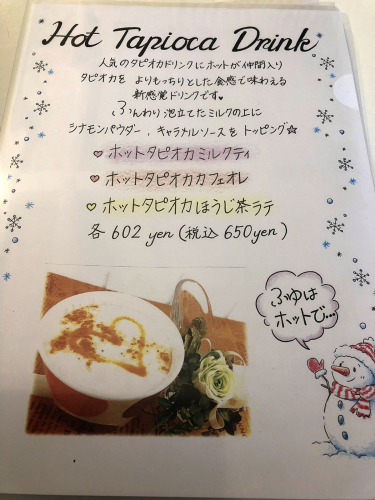 Hot Tapioca Drink
人気のタピオカドリンクにホットが仲間入り
タピオカを よりもっちりとした食感で味わえる
新感覚ドリンクです♥
ふんわり泡立てたミルクの上に
シナモンパウダー、キャラメルソースをトッピング☆
♡ホットタピオカミルクティ
♡ホットタピオカカフェオレ
♡ホットタピオカほうじ茶ラテ
各 602 yen (税込 650yen)
ふゆは
ホットで...